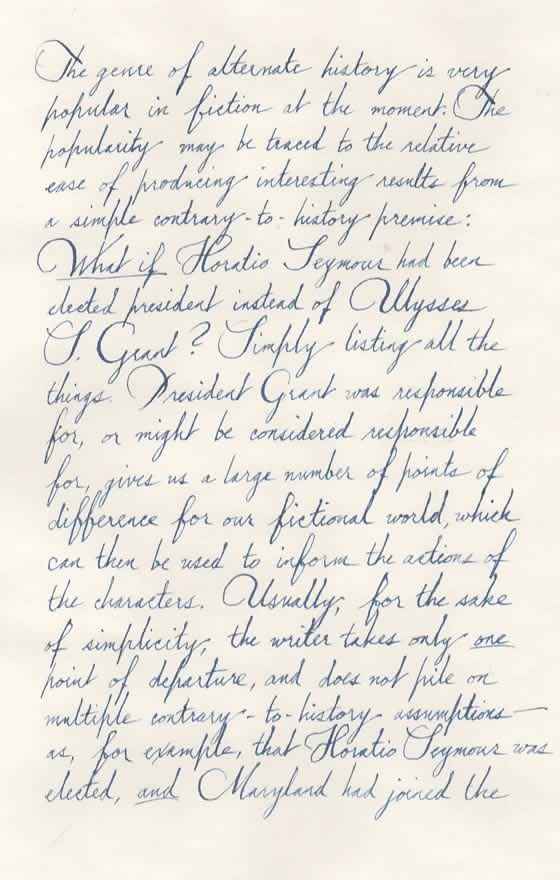 The genre of alternate history is very
popular in fiction at the moment. The
popularity may be traced to the relative
ease of producing interesting results from
a simple contrary-to-history premise:
What if Horatio Seymour had been
elected president instead of Ulysses
S. Grant? Simply listing all the
things President Grant was responsible
for, or might be considered responsible
for, gives us a large number of points of
difference for our fictional world, which
can then be used to inform the actions of
the characters. Usually, for the sake
of simplicity, the writer takes only one
point of departure, and does not pile on
multiple contrary-to-history assumptions—
as, for example, that Horatio Seymour was
elected, and Maryland had joined the